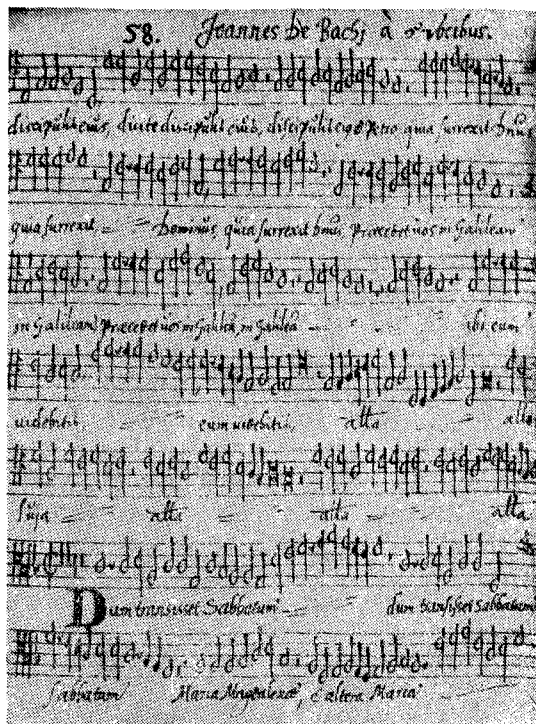 58. Joannes de Bachi à vocibus.
discipulis eius, dicite discipulis eius, discipulis eius et Petro quia surrexit dnus
quia surrexit dominus, quia surrexit dnus Præcedet uos in Galileam
in Galileam Præcedet uos in Galileã in Galilea ibi eum
uidebitis eum uidebitis alla alla
luja alla alla alla
Dum transisset Sabbatum dum transisset Sabbatum
Sabbatum Maria Magdalenæ, et altera Maria